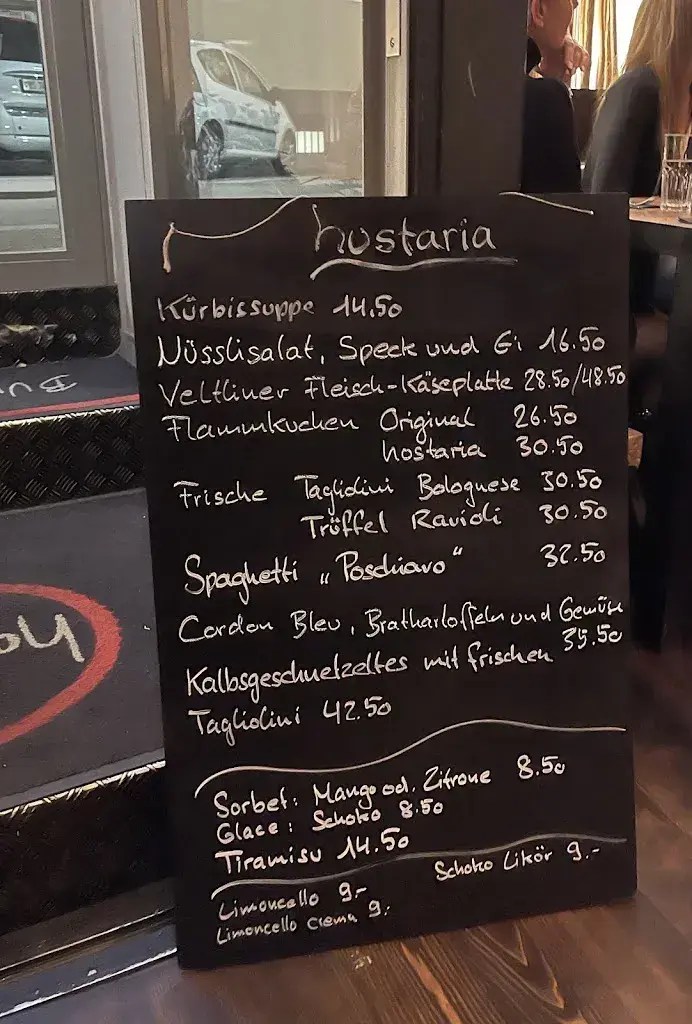 hostaria
Kürbissuppe 14.50
Nüsslisalat, Speck und Ei 16.50
Veltliner Fleisch-Käseplatte 28.50/48.50
Flammkuchen Original 26.50
hostaria 30.50
Frische Tagliolini Bolognese 30.50
Trüffel Ravioli 30.50
Spaghetti „Poschiavo“ 32.50
Cordon Bleu, Bratkartoffeln und Gemüse
35.50
Kalbsgeschnetzeltes mit frischen
Tagliolini 42.50
Sorbet: Mango od. Zitrone 8.50
Glace: Schoko 8.50
Tiramisu 14.50
Schoko Likör 9.-
Limoncello 9.-
Limoncello Crema 9.-